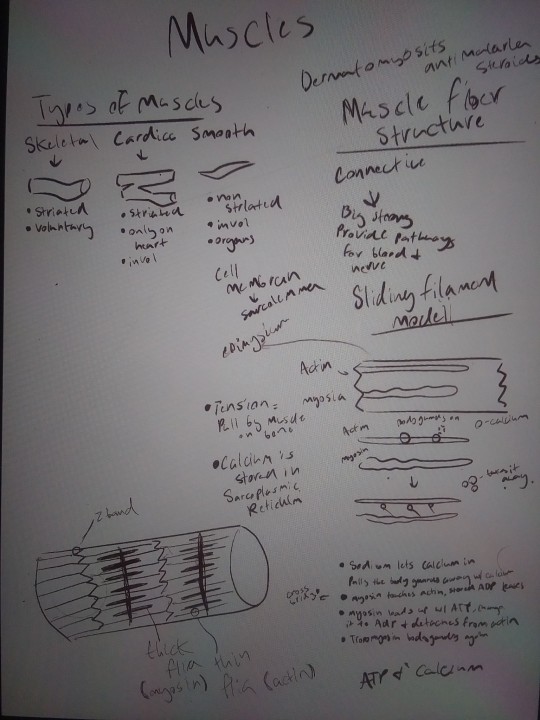 Muscles
Dermatomyosits
antimalarian
steroids
Types of Muscles
Skeletal
• striated
• voluntary
Cardiac
• striated
• only on
heart
• invol
Smooth
• non
striated
• invol
• organs
Muscle fiber
structure
Connective
Big strong
Provide pathways
for blood &
nerve
Cell
membran
Sarcolemmen
epimysium
Sliding filament
modell
Actin
myosin
• Tension =
Pull by muscle
on bone
• Calcium is
stored in
Sarcoplasmic
Reticulm
Actin
bodyguards on
O-calcium
myosin
away.
Z band
thick
filia
(myosin)
thin
filia (actin)
cross
bridge
• Sodium lets calcium in
Pulls the body guards away w/ calcium
• myosin touches actin, stored ADP leaves
• myosin loads up w/ ATP, change
it to ADP & detaches from actin
• Tropomyosin bodyguards again
ATP & Calcium